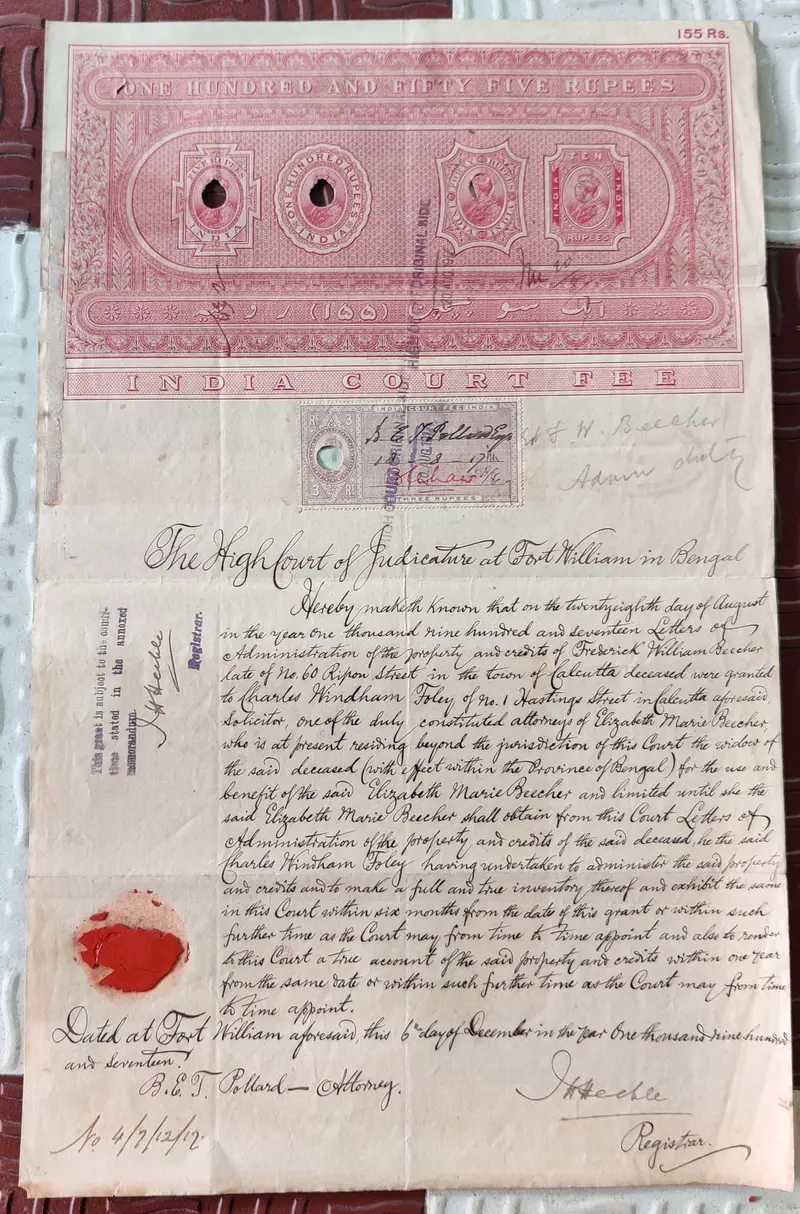 155 Rs.
ONE HUNDRED AND FIFTY FIVE RUPEES
FIVE RUPEES
INDIA
ONE HUNDRED RUPEES
INDIA
FORTY RUPEES
INDIA
TEN
INDIA
INDIA
RUPEES
ایک سو پچپن (۱۵۵) روپیہ
INDIA COURT FEE
INDIA COURT FEE INDIA
Rs 3
3 Rs
B. E. T. Pollard Esqr
THREE RUPEES
F. W. Beecher
Admn duty
The High Court of Judicature at Fort William in Bengal
Hereby maketh known that on the twentyeighth day of August
in the year one thousand nine hundred and seventeen Letters of
Administration of the property and credits of Frederick William Beecher
late of No. 60 Ripon Street in the town of Calcutta deceased were granted
to Charles Windham Foley of No. 1 Hastings Street in Calcutta aforesaid
Solicitor, one of the duly constituted attorneys of Elizabeth Marie Beecher
who is at present residing beyond the jurisdiction of this Court the widow of
the said deceased (with effect within the Province of Bengal) for the use and
benefit of the said Elizabeth Marie Beecher and limited until she the
said Elizabeth Marie Beecher shall obtain from this Court Letters of
Administration of the property and credits of the said deceased, he the said
Charles Windham Foley having undertaken to administer the said property
and credits and to make a full and true inventory thereof and exhibit the same
in this Court within six months from the date of this grant or within such
further time as the Court may from time to time appoint and also to render
to this Court a true account of the said property and credits within one year
from the same date or within such further time as the Court may from time
to time appoint.
This grant is subject to the condi-
tions stated in the annexed
memorandum.
J H Hechle
Registrar.
Dated at Fort William aforesaid, this 6th day of December in the year One thousand nine hundred
and seventeen.
B. E. T. Pollard — Attorney.
J H Hechle
Registrar.
No. 4/7/12/17.